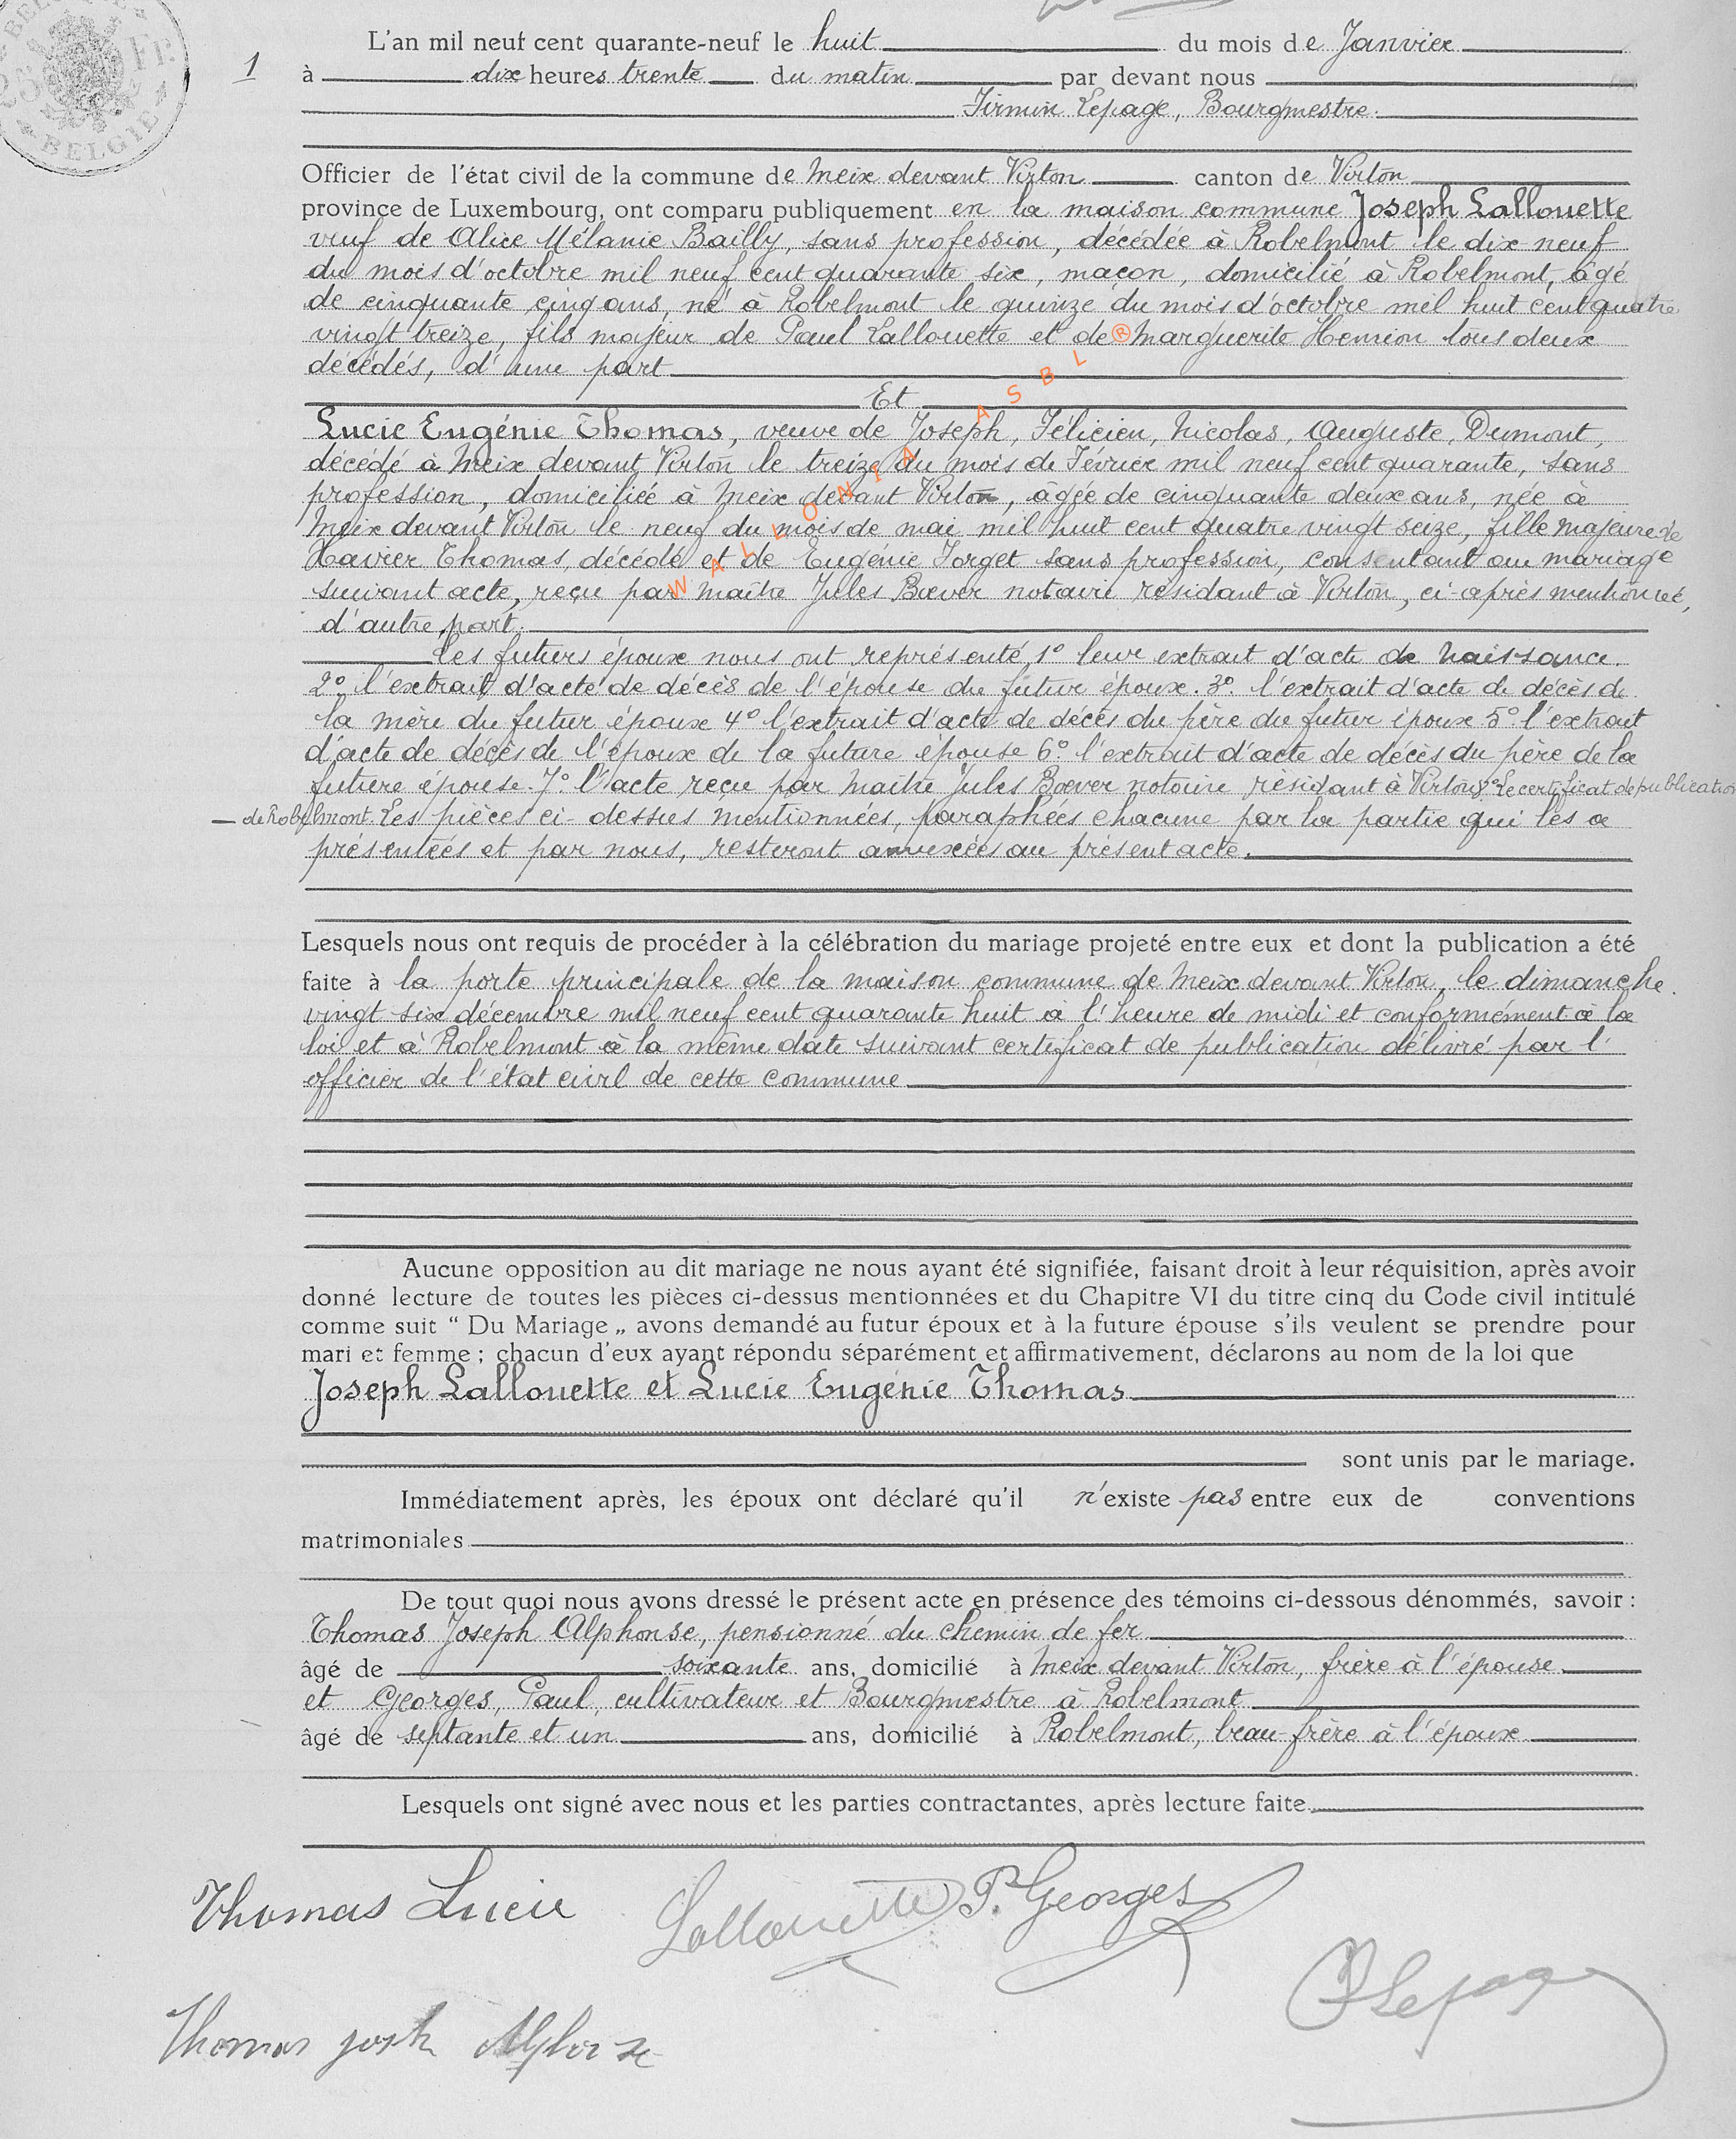 L'an mil neuf cent quarante-neuf le huit du mois de Janvier
1 à dix heures trente du matin par devant nous
Firmin Lepage, Bourgmestre.
BELGIE
Officier de l'état civil de la commune de Meix devant Virton canton de Virton
province de Luxembourg, ont comparu publiquement en la maison commune Joseph Lallouette
veuf de Alice Mélanie Bailly, sans profession, décédée à Robelmont le dix neuf
du mois d'octobre mil neuf cent quarante six, maçon, domicilié à Robelmont, âgé
de cinquante cinq ans, né à Robelmont le quinze du mois d'octobre mil huit cent quatre
vingt treize, fils majeur de Paul Lallouette et de Marguerite Henrion tous deux
décédés, d'une part
Et
Lucie Eugénie Thomas, veuve de Joseph, Félicien, Nicolas, Auguste, Dumont,
décédé à Meix devant Virton le treize du mois de Février mil neuf cent quarante, sans
profession, domiciliée à Meix devant Virton, âgée de cinquante deux ans, née à
Meix devant Virton le neuf du mois de mai mil huit cent quatre vingt seize, fille majeure de
Xavier Thomas, décédé et de Eugénie Forget sans profession, consentant au mariage
suivant acte, reçu par Maître Jules Bœver notaire résidant à Virton, ci-après mentionné,
d'autre part.
Les futurs époux nous ont représenté 1° leur extrait d'acte de naissance.
2° l'extrait d'acte de décès de l'épouse du futur époux. 3° l'extrait d'acte de décès de
la mère du futur époux 4° l'extrait d'acte de décès du père du futur époux 5° l'extrait
d'acte de décès de l'époux de la future épouse 6° l'extrait d'acte de décès du père de la
future épouse. 7° l'acte reçu par Maître Jules Bœver notaire résidant à Virton 8° Le certificat de publication
de Robelmont. Les pièces ci-dessus mentionnées, paraphées chacune par la partie qui les a
présentées et par nous, resteront annexées au présent acte.
Lesquels nous ont requis de procéder à la célébration du mariage projeté entre eux et dont la publication a été
faite à la porte principale de la maison commune de Meix devant Virton, le dimanche
vingt-six décembre mil neuf cent quarante huit à l'heure de midi et conformément à la
loi et à Robelmont à la même date suivant certificat de publication délivré par l'
officier de l'état civil de cette commune
Aucune opposition au dit mariage ne nous ayant été signifiée, faisant droit à leur réquisition, après avoir
donné lecture de toutes les pièces ci-dessus mentionnées et du Chapitre VI du titre cinq du Code civil intitulé
comme suit “ Du Mariage „ avons demandé au futur époux et à la future épouse s'ils veulent se prendre pour
mari et femme ; chacun d'eux ayant répondu séparément et affirmativement, déclarons au nom de la loi que
Joseph Lallouette et Lucie Eugénie Thomas
sont unis par le mariage.
Immédiatement après, les époux ont déclaré qu'il n'existe pas entre eux de conventions
matrimoniales
De tout quoi nous avons dressé le présent acte en présence des témoins ci-dessous dénommés, savoir :
Thomas Joseph Alphonse, pensionné du chemin de fer
âgé de soixante ans, domicilié à Meix devant Virton, frère à l'épouse
et Georges, Paul, cultivateur et Bourgmestre à Robelmont
âgé de septante et un ans, domicilié à Robelmont, beau-frère à l'époux
Lesquels ont signé avec nous et les parties contractantes, après lecture faite.
Thomas Lucie Lallouette P. Georges
Lepage
Thomas Joseph Alphonse
WALLONIA ASBL ®